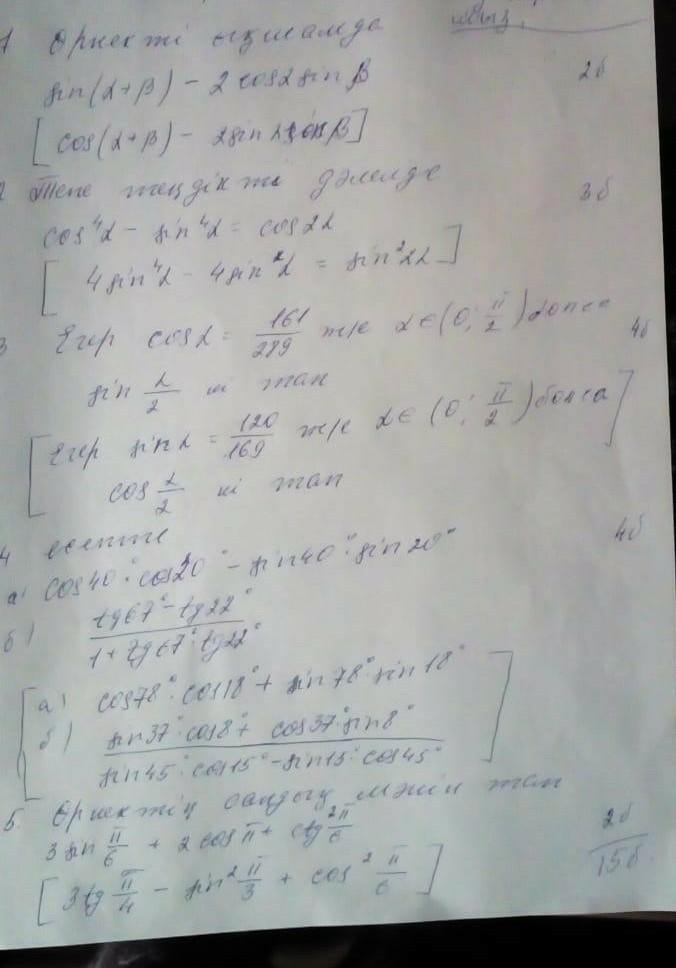 1 Өрнекті ықшамда
sin(α+β) - 2cosα sinβ 2б
[cos(α+β) - 2sinα sinβ]
2 Тепе теңдікті дәлелде 3б
cos⁴α - sin⁴α = cos2α
[4sin⁴α - 4sin²α = sin²2α]
3 Егер cosα = 161/289 және α∈(0; π/2) болса 4б
sin α/2 ні тап
[Егер sinα = 120/169 және α∈(0; π/2) болса
cos α/2 ні тап]
4 есепте 4б
а) cos40°·cos20° - sin40°·sin20°
б) (tg67° - tg22°)/(1 + tg67°·tg22°)
[а) cos78°·cos18° + sin78°·sin18°
б) (sin37°·cos8° + cos37°·sin8°)/(sin45°·cos15° - sin15°·cos45°)]
5. Өрнектің сандық мәнін тап
3 sin π/6 + 2 cos π + ctg² π/6 2б
[3tg π/4 - sin² π/3 + cos² π/6] 15б.